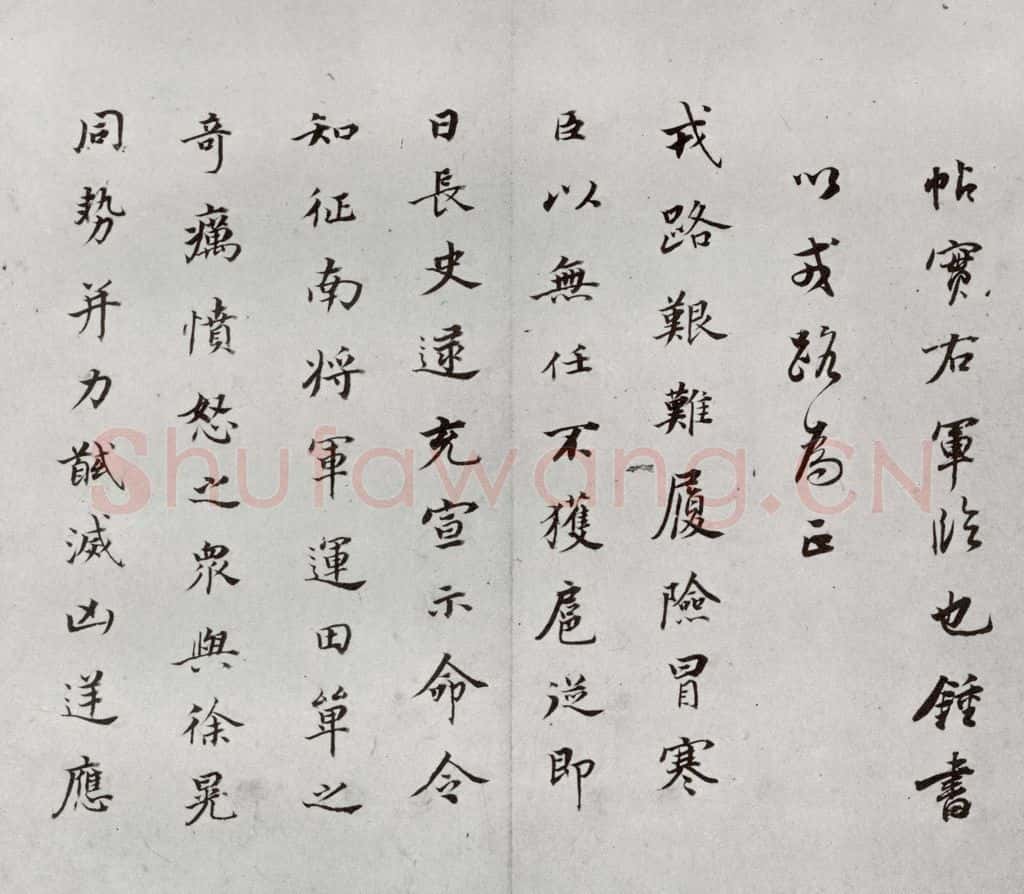 帖實右軍臨也鍾書
以戎路為正
戎路艱難履險冒寒
臣以無任不獲扈從即
日長史逯充宣示命令
知征南將軍運田單之
奇癘憤怒之衆與徐晃
同勢并力馘滅凶逆應
Shufawang.CN